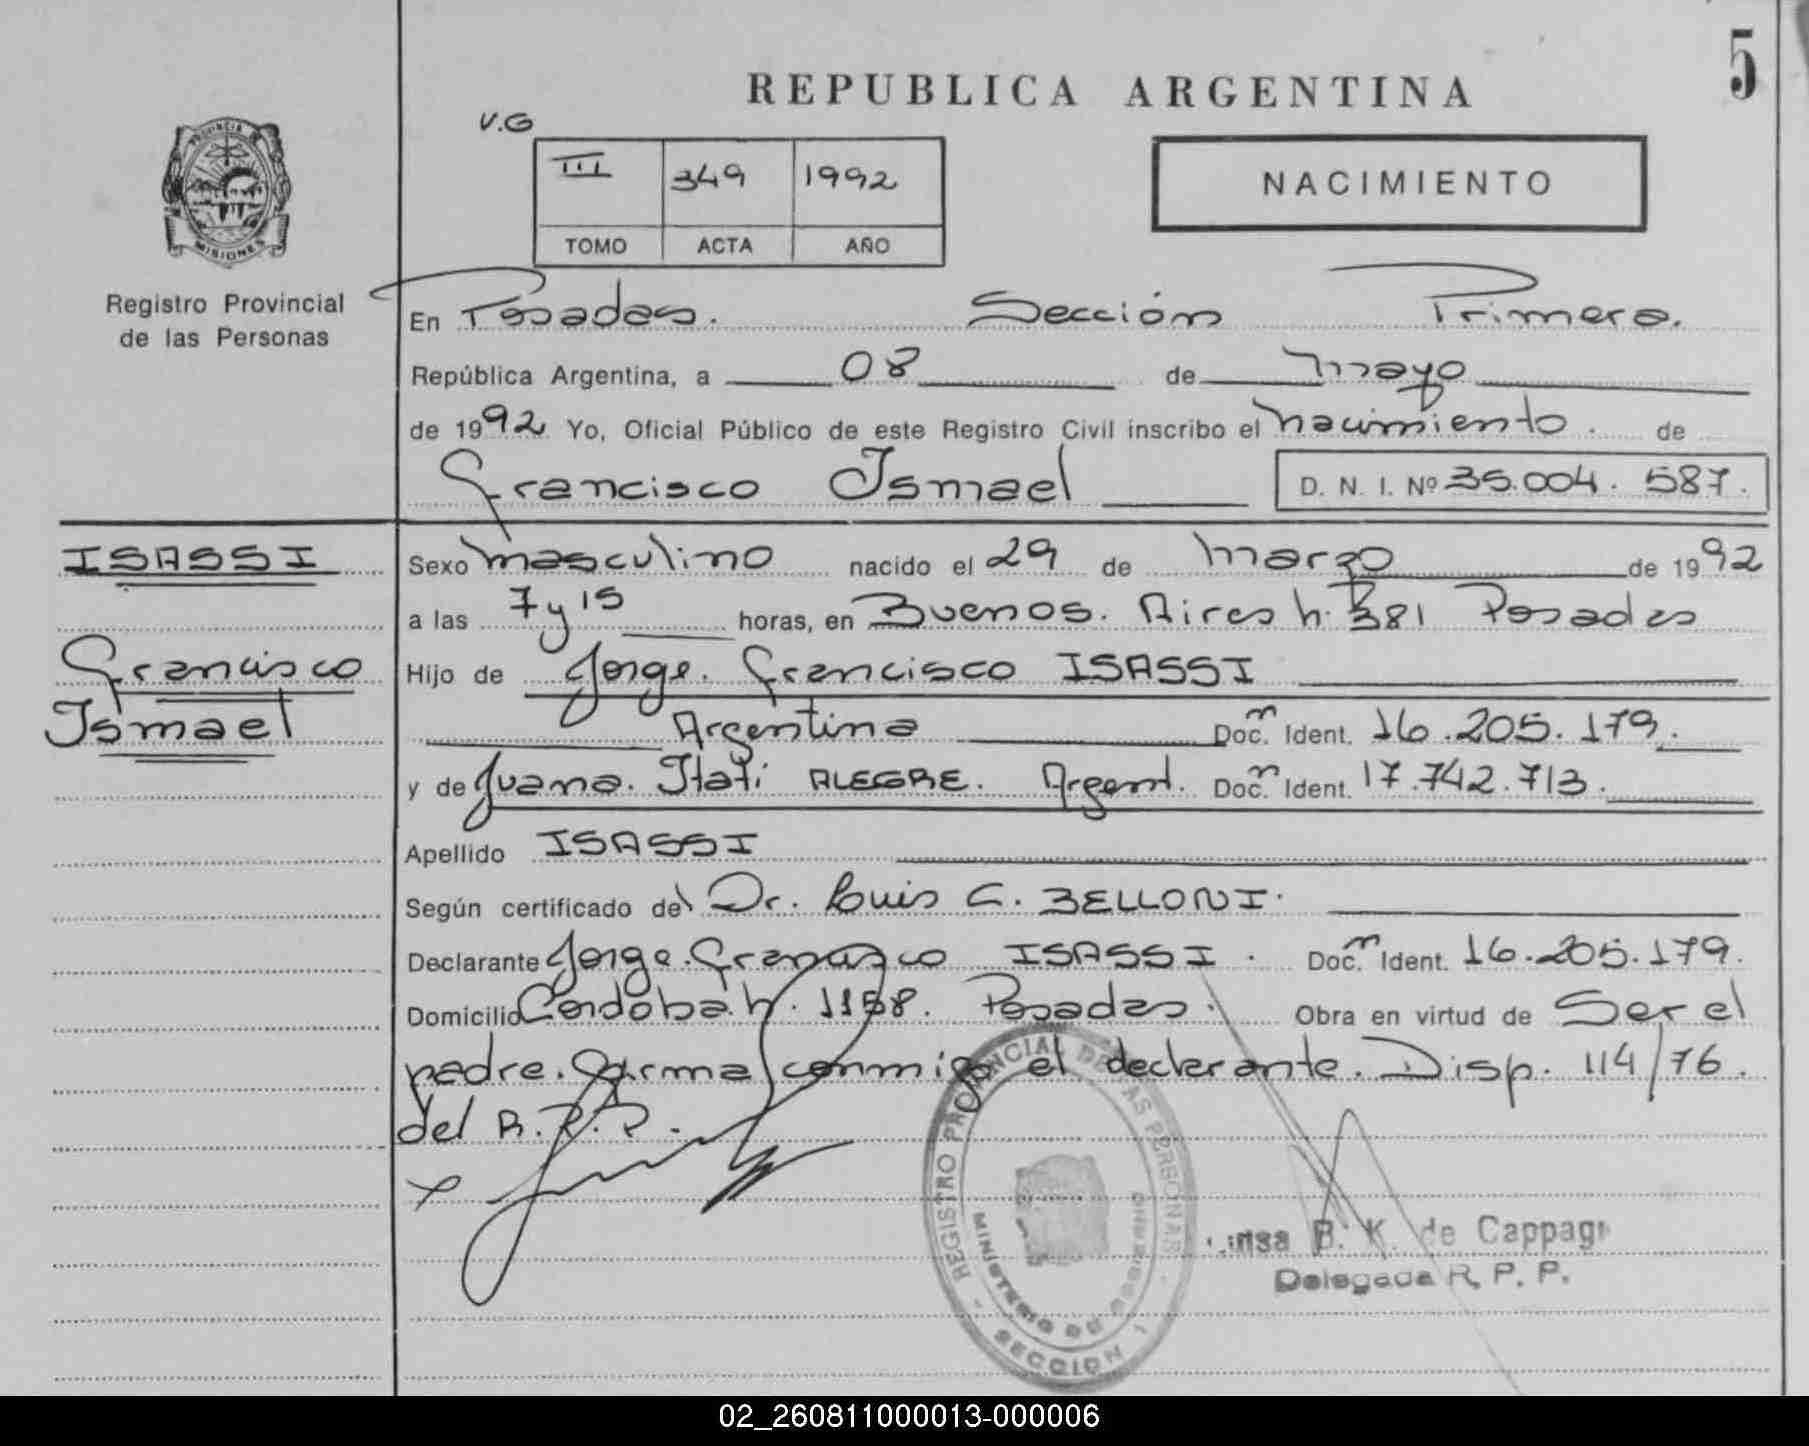 5
REPUBLICA ARGENTINA
V.G
III 349 1992
TOMO ACTA AÑO
NACIMIENTO
PROVINCIA DE
MISIONES
Registro Provincial
de las Personas
En Posadas. Sección Primera.
República Argentina, a 08 de mayo
de 1992 Yo, Oficial Público de este Registro Civil inscribo el nacimiento. de
Francisco Ismael D. N. I. Nº 35.004.587.
ISASSI
Francisco
Ismael
Sexo masculino nacido el 29 de marzo de 1992
a las 7 y 15 horas, en Buenos Aires h. 381 Posadas
Hijo de Jorge Francisco ISASSI
Argentina Doc. m Ident. 16.205.179.
y de Juana Itatí ALEGRE. Argent. Doc. m Ident. 17.742.713.
Apellido ISASSI
Según certificado del Dr. Luis C. BELLONI.
Declarante Jorge Francisco ISASSI. Doc. m Ident. 16.205.179.
Domicilio Córdoba h. 1158. Posadas. Obra en virtud de Ser el
padre. Firma conmigo el declarante. Disp. 114/76.
del R.P.P.
REGISTRO PROVINCIAL DE LAS PERSONAS
MINISTERIO DE GOBIERNO
SECCION 1
B. K. de Cappagn
Delegada R. P. P.
02_260811000013-000006